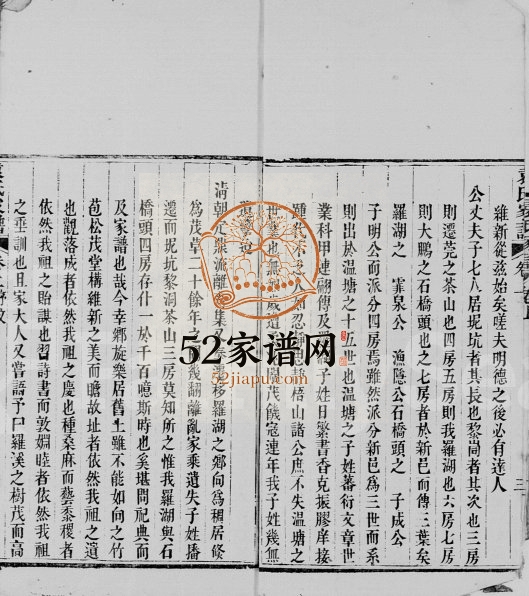 維新從茲始矣嗟夫明德之後必有達人
公丈夫子七人居坭坑者其長也黎峝者其次也三房
則遷莞之茶山也四房五房則我羅湖也六房七房
則大鵬之石橋頭也之七房者於新邑而傳三葉矣
羅湖之 霏泉公 漁隐公石橋頭之 子成公
子明公而派分四房焉雖然派分新邑為三世而系
則出於温塘之十五世也温塘之子姓蕃衍文章世
業科甲連翩傳及子姓日繁書香克振膠庠接
踵代不乏人梧山諸公庶不失温塘之
世間茂饑冦連年我子姓幾無
清朝定鼎流離移羅湖之鄉向為稠居倏
為茂草二十餘年之幾翻離亂家乗遺失子姓播
遷而坭坑黎洞茶山三房莫知所之惟我羅湖與石
橋頭四房存什一於千百噫斯時也奚堪問祀典而
及家譜也哉今幸鄉旋樂居舊土雖不能如向之竹
苞松茂堂構維新之美而瞻故址者依然我祖之遺
也觀落成者依然我祖之慶也種桑麻而藝黍稷者
依然我祖之貽謀也習詩書而敦婣睦者依然我祖
之垂訓也且家大人又嘗語予曰羅溪之樹茂而高
52家谱网
52jiapu.com